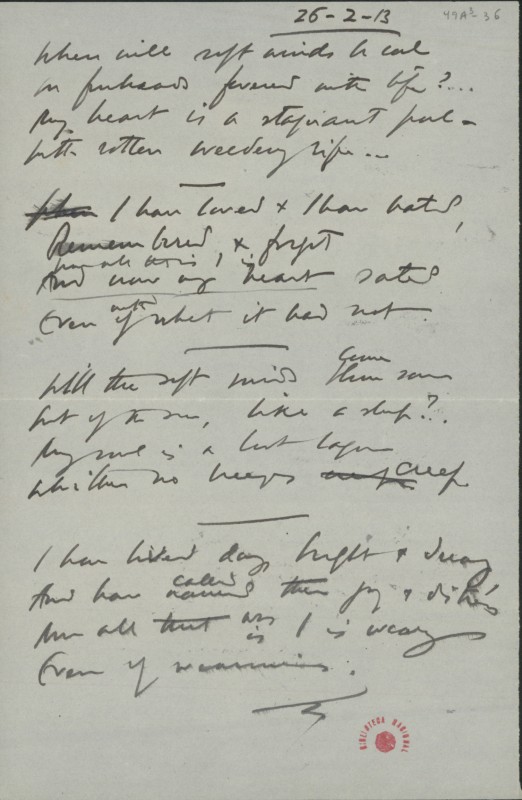 26-2-13
49A³-36
When will soft winds be cool
On foreheads fevered with life?...
My heart is a stagnant pool
With rotten weeds rife...
When I have loved & I have hated,
Remembered & forgot
Now all this I is
And now my heart sated
with
Even of what it had not
Will the soft winds
come
Out of the sea, like a sleep?
My soul is a lost lagoon
Whither no creep
I have lived days bright & dreary
And have named them joy &
called
Now all that I is weary
was
is
Even of
BIBLIOTECA NACIONAL